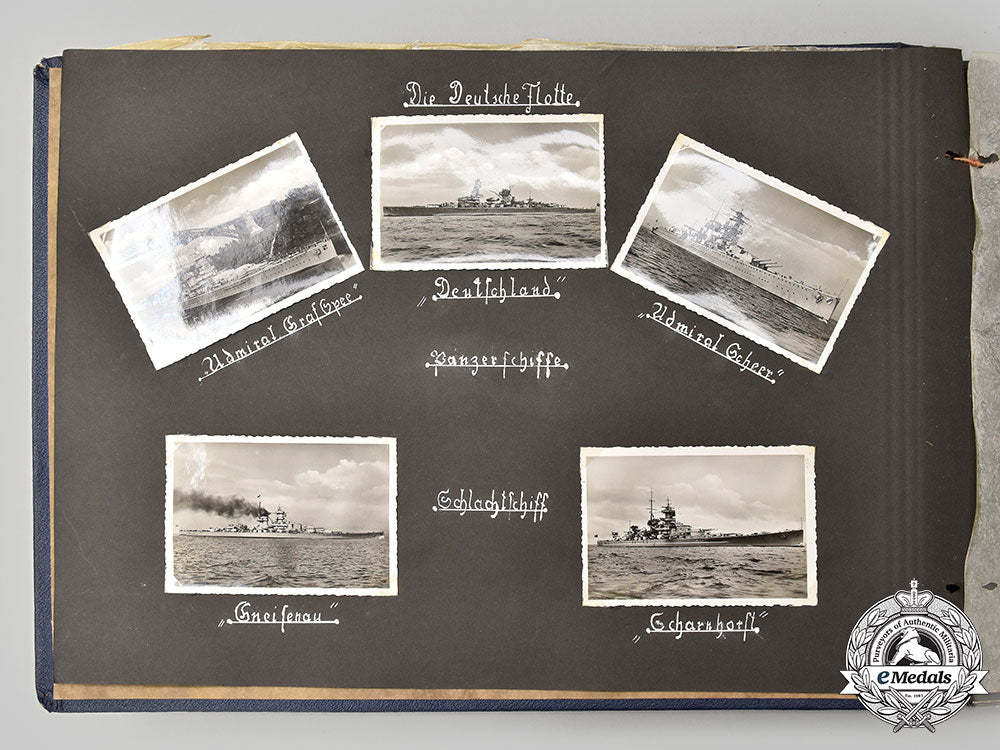 Die Deutsche Flotte.
„Admiral Graf Spee"
„Deutschland"
„Admiral Scheer"
Panzerschiffe.
Schlachtschiff
„Gneisenau"
„Scharnhorst"
Purveyors of Authentic Militaria
eMedals